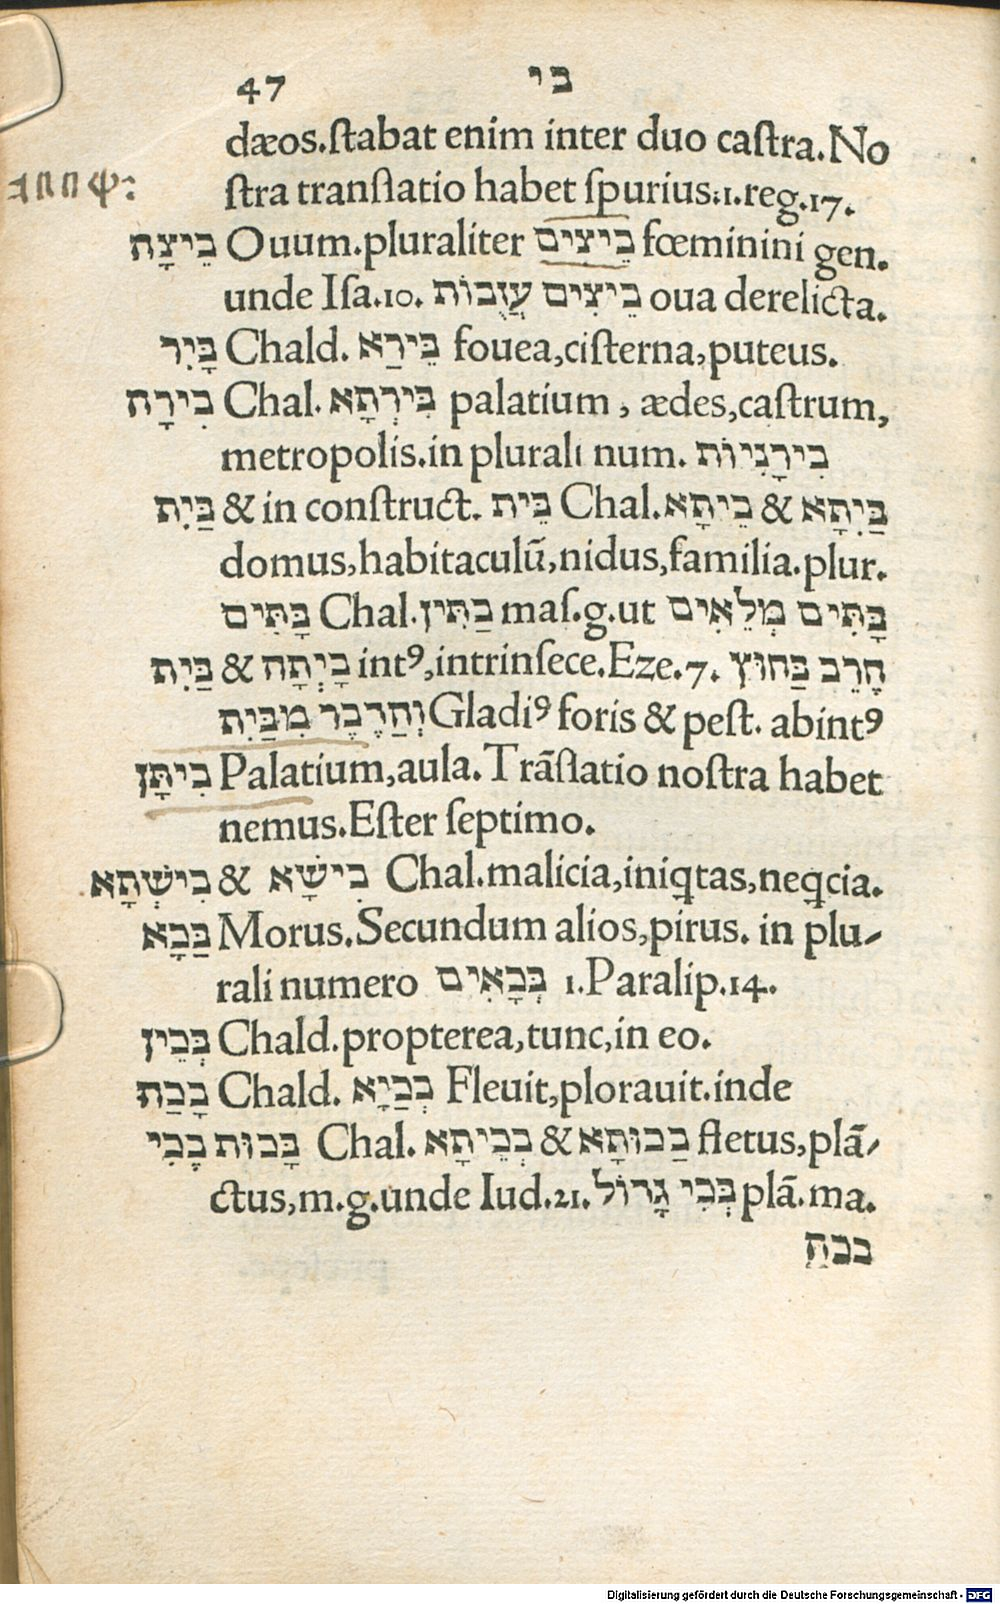 47 בי
dæos.ſtabat enim inter duo caſtra.No
ſtra tranſlatio habet ſpurius.1.reg.17.
בֵיצָה Ouum.pluraliter בֵיצִים fœminini gen.
unde Iſa.10. בֵיצִים עֲזֻבוֹת oua derelicta.
בָּיִר Chald. בֵּירַא fouea,ciſterna,puteus.
בִירָה Chal. בִּירְתָא palatium, ædes,caſtrum,
metropolis.in plurali num. בִירָנִיוֹת
בַּיִת & in conſtruct. בֵּית Chal. בֵיתָא & בַּיִתָא
domus,habitaculũ,nidus,familia.plur.
בָּתִּים Chal. בַתִּין maſ.g.ut בָּתִּים מְלֵאִים
בַּיִת & בָיְתָה intꝰ,intrinſece.Eze.7. חֶרֵב בַּחוּץ
וְחַרֶבֶר מִבַּיִת Gladiꝰ foris & peſt. abintꝰ
בִיתָּן Palatium,aula.Trãſlatio noſtra habet
nemus.Eſter ſeptimo.
בִישְׁתָא & בִישָׁא Chal.malicia,iniqtas,neqcia.
בַּבָא Morus.Secundum alios,pirus. in plu-
rali numero בְּבָאִים 1.Paralip.14.
בְּבֵין Chald.propterea,tunc,in eo.
בָּבַת Chald. בְּבַיָא Fleuit,plorauit.inde
בֶּבִי בָּבוּת Chal. בְּבֵיתָא & בַּבוּתָא fletus,plã-
ctus,m.g.unde Iud.21. בְּבִי גָרוֹל plã.ma.
בבה
Digitalisierung gefördert durch die Deutsche Forschungsgemeinschaft - DFG